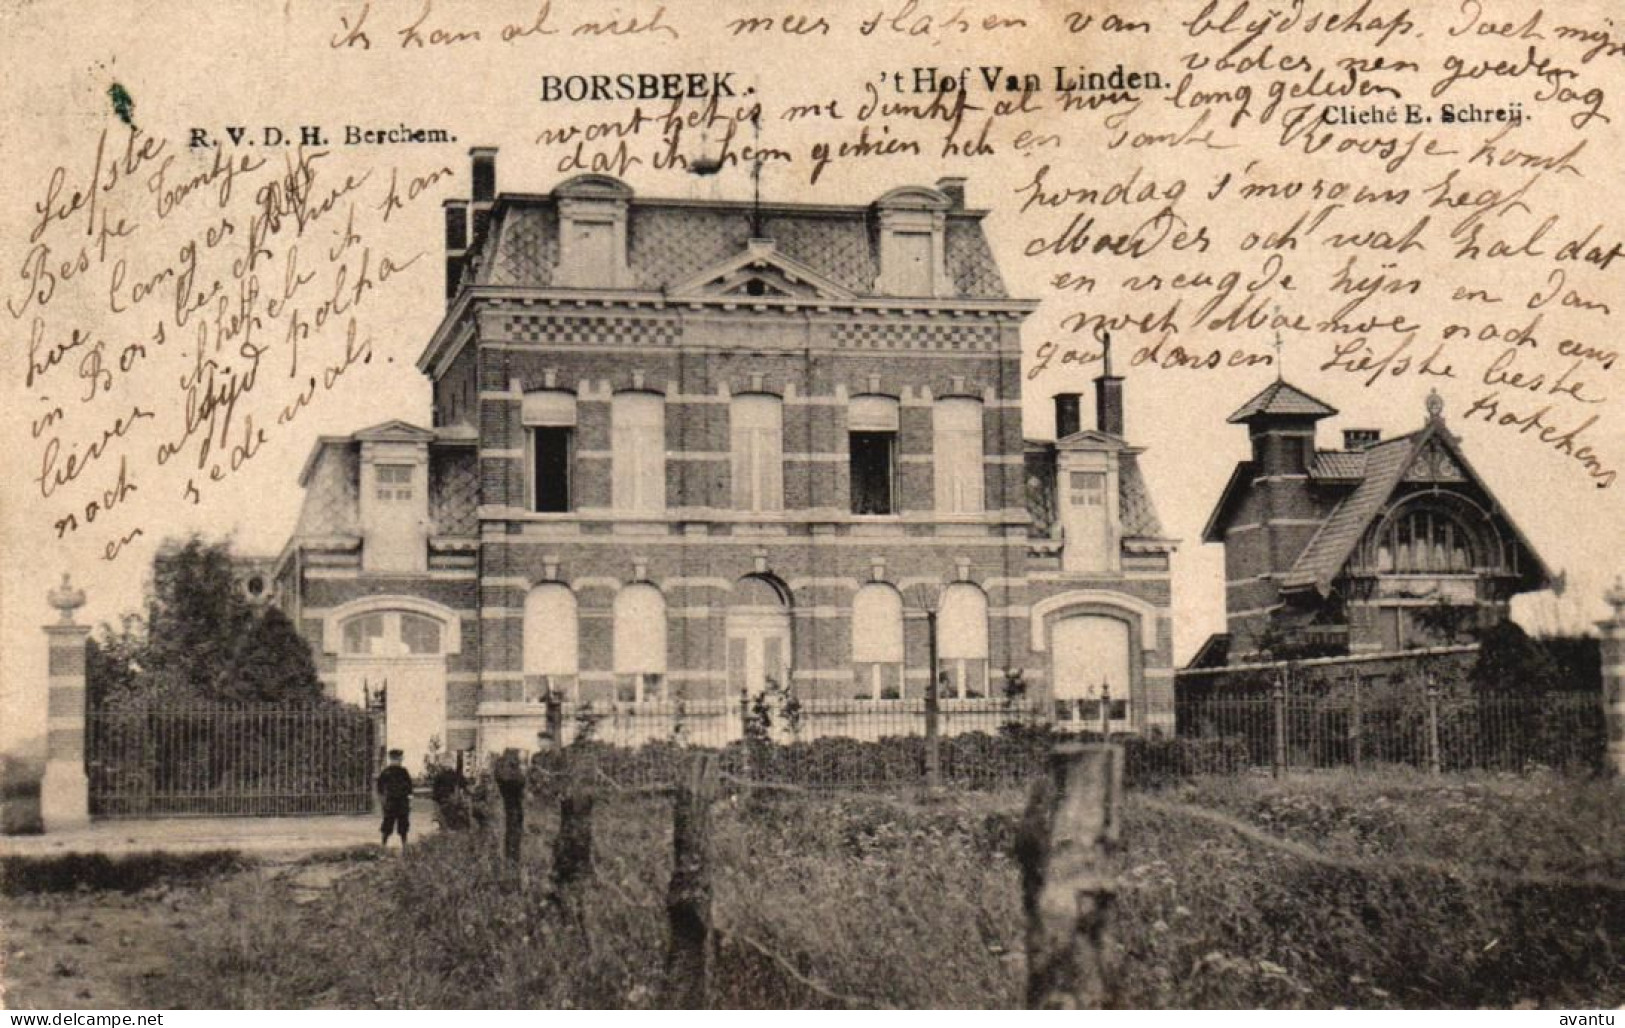 ik kan al niet meer slapen van blijdschap. Doet mijn
vader nen goeden
BORSBEEK. 't Hof Van Linden.
want het is me dunkt al hoe lang geleden Dag
R. V. D. H. Berchem.
Cliché E. Schreij.
dat ik hem gezien heb en Tante Roosje komt
zondag s'morgens zegt
Moeder och wat zal dat
en vreugde zijn en dan
moet Moemoe noch eens
gaa dansen Liefste beste
Liefste
Beste Tantje
hoe langer hoe
in Borsbeek hoe
liever ik heb ik kan
noch altijd polka
en rede wals.
avantu